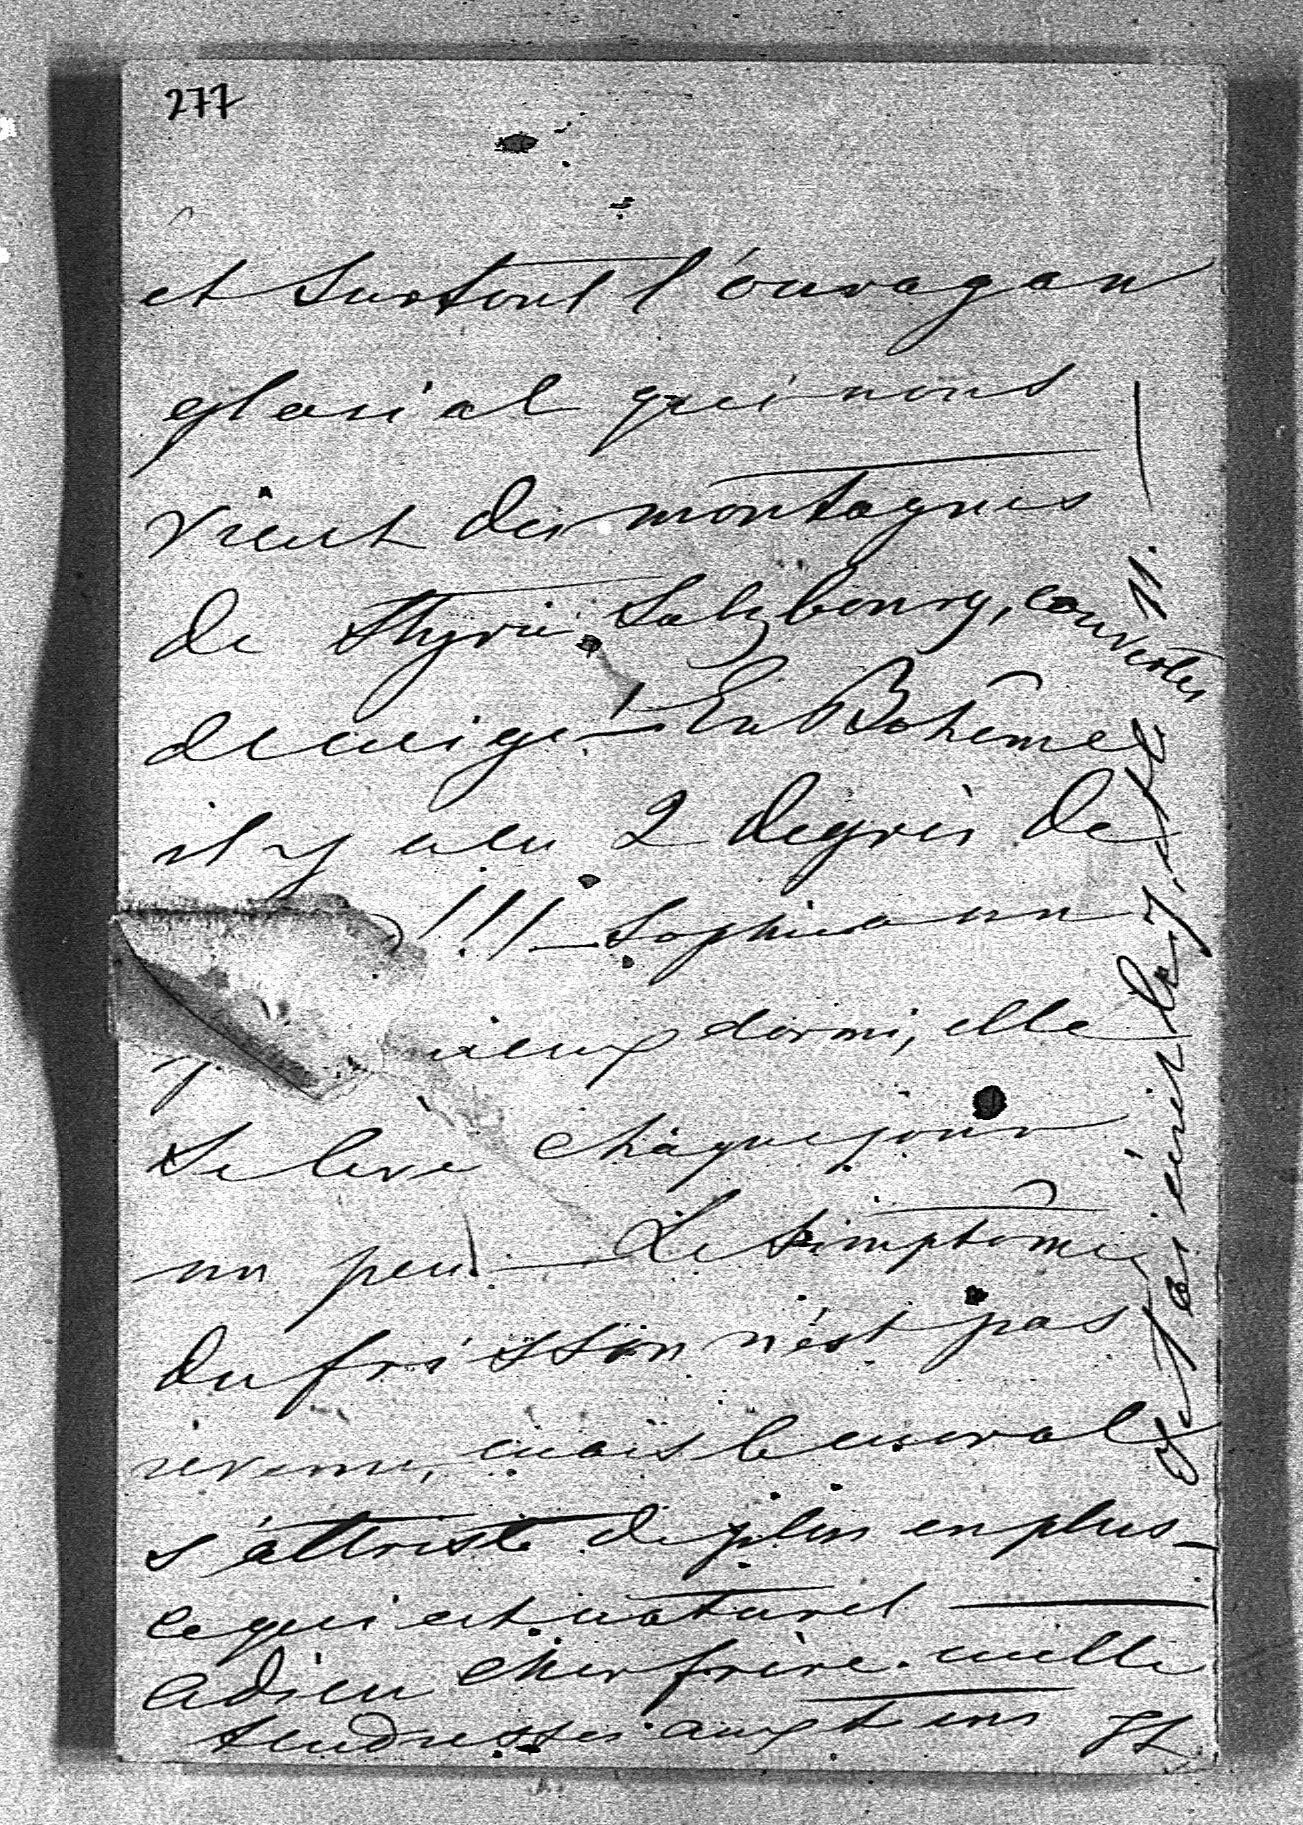 277
et surtout l'ouragan
glacial qui nous
vient des montagnes
de Styrie Salzbourg, couvertes
de neige! — En Bohême
il y a eu 2 degrés de
!!! — Sophie a un
mieux dormi, elle
se lève chaque jour
un peu! — Le simptôme
du frisson n'est pas
revenu, mais le moral
s'attriste de plus en plus —
ce qui est naturel —
adieu cher frère. mille
tendresses aux tiens
Je t'ai écrit le 7, et le 11. —